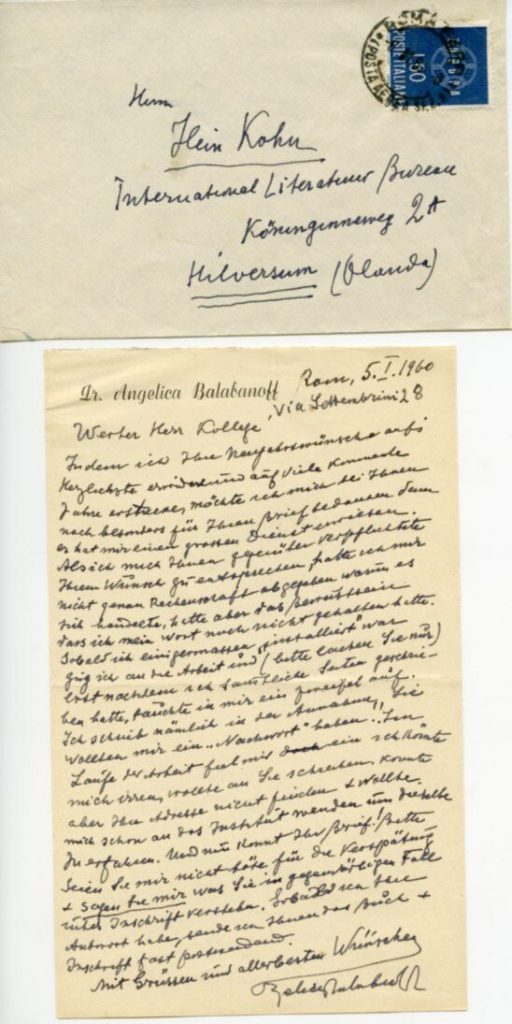 ROMA
POSTE ITALIANE
L60
EUROPA
Herrn
Hein Kohn
International Literatuur Bureau
Köninginneweg 2A
Hilversum (Olanda)
Dr. Angelica Balabanoff
Rom, 5.I.1960
Via Settembrini 28
Werter Herr Kollege,
Indem ich Ihre Neujahrswünsche aufs
Herzlichste erwidere und auf viele kommende
Jahre erstrecke, möchte ich mich bei Ihnen
noch besonders für Ihren Brief bedanken denn
er hat mir einen grossen Dienst erwiesen.
Als ich mich Ihnen gegenüber verpflichtete
Ihrem Wunsch zu entsprechen, hatte ich mir
nicht genau Rechenschaft abgegeben warum es
sich handelte, hatte aber das Bewusstsein
dass ich mein Wort noch nicht gehalten hatte.
Sobald ich einigermassen "installiert" war
ging ich an die Arbeit und (bitte lachen Sie nur)
erst nachdem ich Seiten geschrie-
ben hatte, tauchte in mir ein Zweifel auf.
Ich schrieb nämlich in der Annahme, Sie
wollten mir ein "Nachwort" haben. Im
Laufe der Arbeit fiel mir ein ich könnte
mich irren, wollte an Sie schreiben, konnte
aber Ihre Adresse nicht finden + wollte
mich schon an das Institut wenden um dieselbe
zu erfahren. Und nun kommt Ihr Brief! Bitte
seien Sie mir nicht böse für die Verspätung
+ sagen Sie mir was Sie in gegenwärtigen Fall
unter Inschrift verstehen. Sobald ich Ihre
Antwort habe, sende ich Ihnen das Buch +
Inschrift fast postwendend.
Mit Grüssen und allerbesten Wünschen
Balabanoff